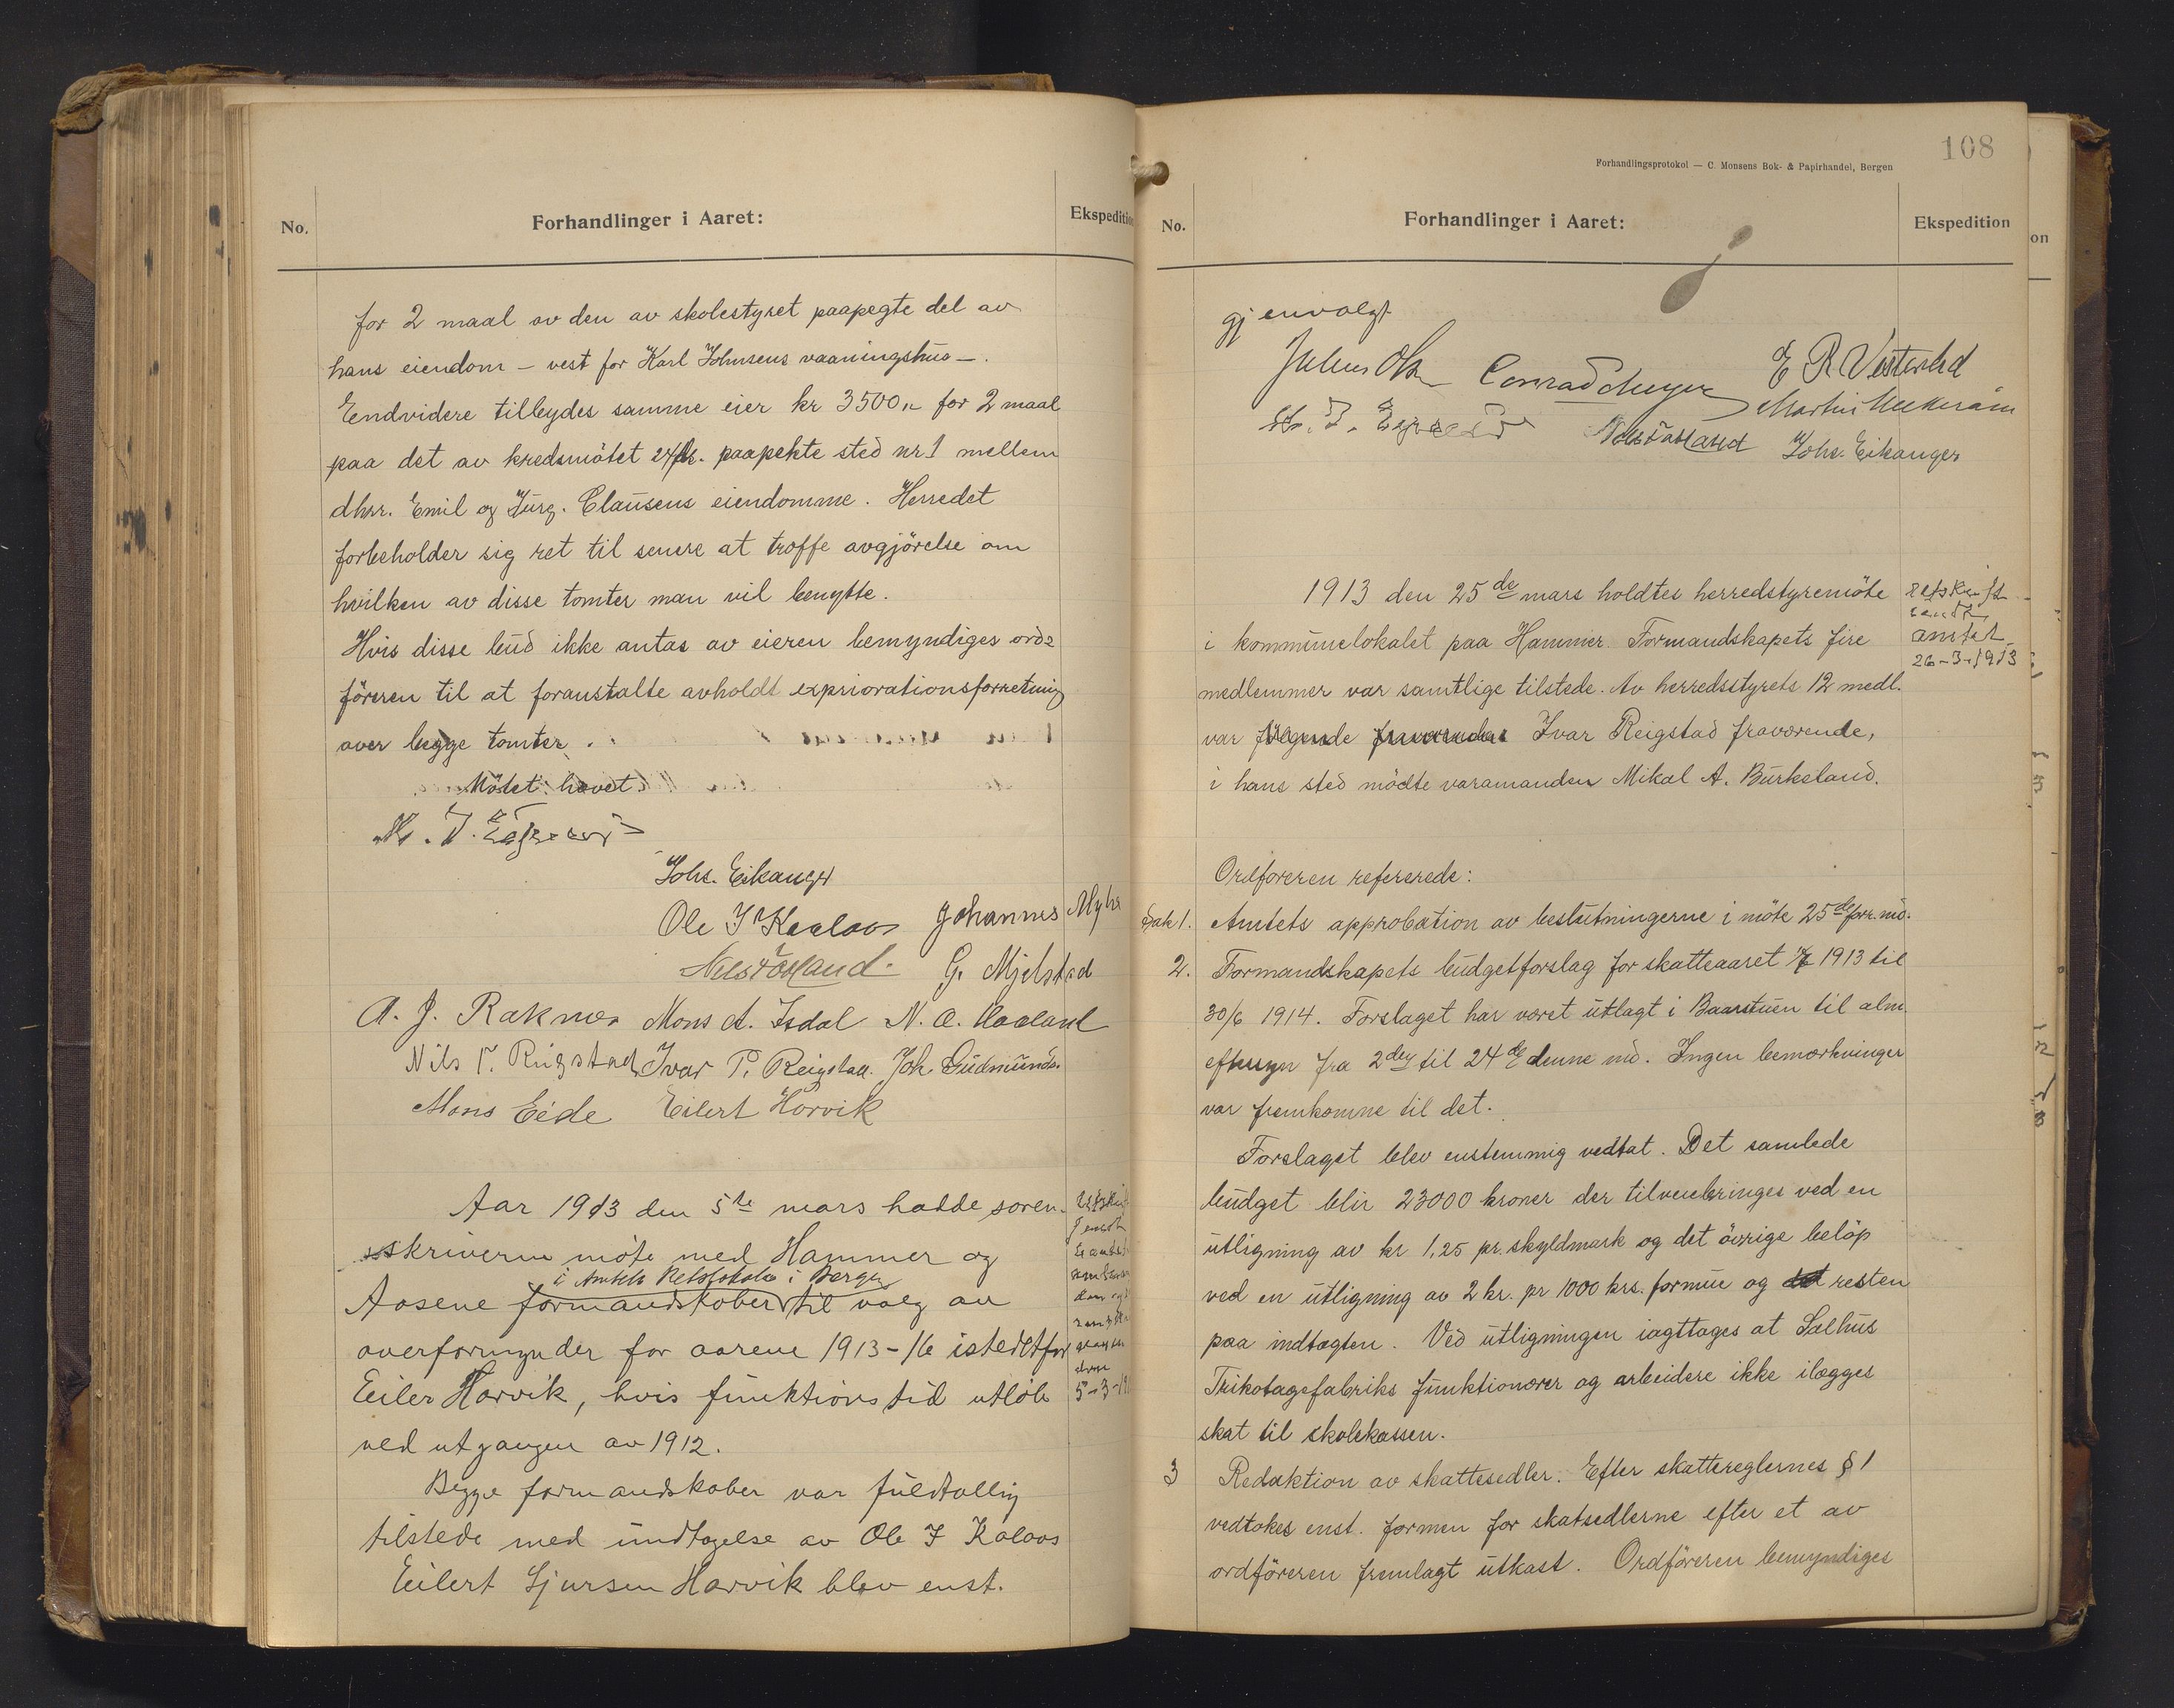 No.
Forhandlinger i Aaret:
Ekspedition
for 2 maal av den av skolestyret paapegte del av
hans eiendom – vest for Karl Johnsens vaaningshus –.
Eendvidere tilbydes samme eier kr 3500,- for 2 maal
paa det av kredsmötet paapekte sted nr. 1 mellem
dhrr. Emil og Jürg. Clausens eiendomme. Herredet
forbeholder sig ret til senere at træffe avgjörelse om
hvilken av disse tomter man vil benytte.
Hvis disse bud ikke antas av eieren bemyndiges ord-
föreren til at foranstalte avholdt expriorationsforretning
over begge tomter.
Mötet hævet.
Johs. Eikanger
Ole J Kaalaas Johannes Myhr
Nils Fosland. G. Mjelstad
A. J. Raknes Mons A. Isdal N. A. Haaland
Nils T. Rigstad Ivar P. Reigstad. Joh. Gudmunds.
Mons Eide Eilert Horvik
Aar 1913 den 5te mars hadde soren-
skriveren möte med Hammer og
i Amtets Retslokale i Bergen
Aasene formandskaber til valg av
overformynder for aarene 1913-16 istedetfor
Eiler Horvik, hvis funktions tid utlöb
ved utgangen av 1912.
Begge formandskaber var fuldtallig
tilstede med undtagelse av Ole J Kalaas
Eilert Sjursen Horvik blev enst.
5-3-19
108
Forhandlingsprotokol — C. Monsens Bok- & Papirhandel, Bergen
No.
Forhandlinger i Aaret:
Ekspedition
on
gjenvalgt
Julius Olsen Conrad Meyer E R Vesterlid
Nils Fosland Johs. Eikanger
1913 den 25de mars holdtes herredstyremöte
i kommunelokalet paa Hammer. Formandskapets fire
medlemmer var samtlige tilstede. Av herredsstyrets 12 medl.
var fölgende fraværende Ivar Reigstad fraværende,
i hans sted mödte varamanden Mikal A. Burkeland.
utskrift
sendt
amtet
26-3-1913
Ordföreren refererede:
Sak 1. Amtets approbation av beslutningerne i möte 25de forr. md.
2. Formandskapets budgetforslag for skatteaaret 1/7 1913 til
30/6 1914. Forslaget har været utlagt i Baarstuen til alm.
eftersyn fra 2den til 24de denne md. Ingen bemærkninger
var fremkomne til det.
Forslaget blev enstemmig vedtat. Det samlede
budget blir 23000 kroner der tilveiebringes ved en
utligning av kr 1,25 pr. skyldmark og det övrige belöp
ved en utligning av 2 kr. pr 1000 krs. formue og det resten
paa indtægten. Ved utligningen iagttages at Salhus
Trikotagefabriks funktionærer og arbeidere ikke ilægges
skat til skolekassen.
3 Redaktion av skattesedler. Efter skattereglernes § 1
vedtokes enst. formen for skatsedlerne efter et av
ordföreren fremlagt utkast. Ordföreren bemyndiges